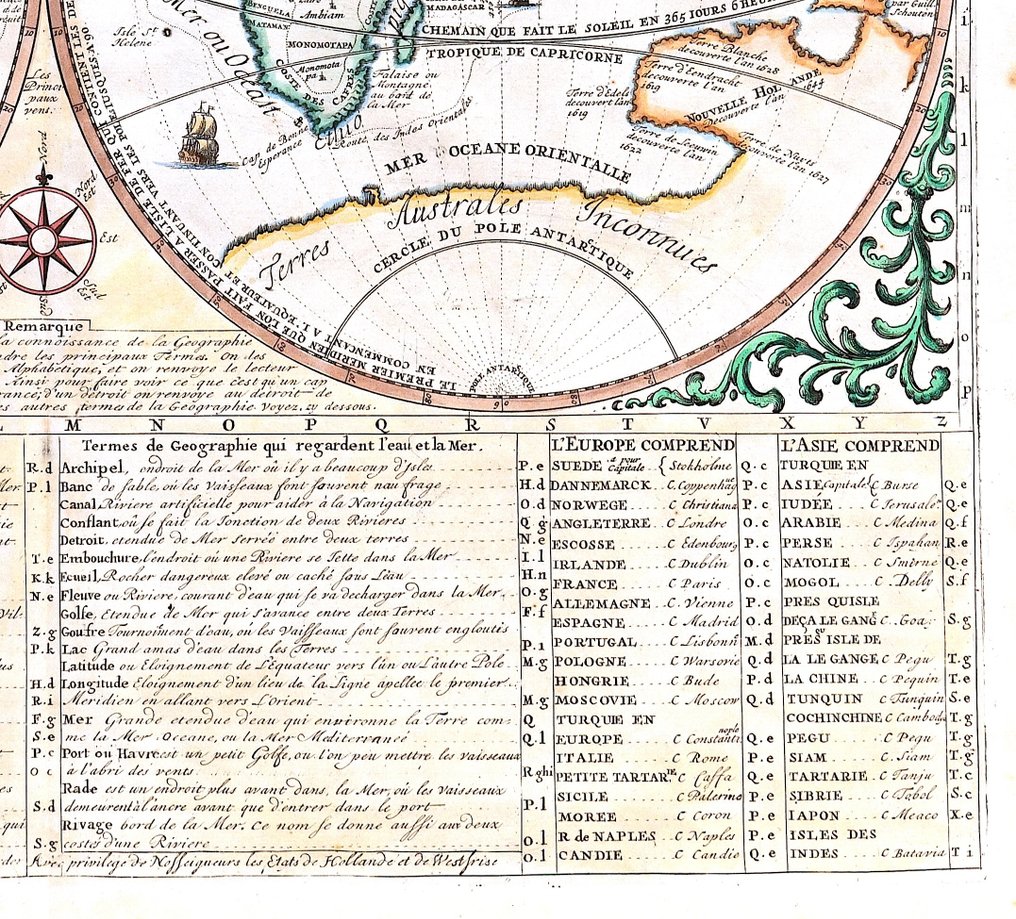 Mer ou Ocean
Ethio
Isle St
Helene
BENGUELA
MATAMAN
Ambiam
MONOMOTAPA
Monomota
pa
COSTE DES CAFRES
MADAGASCAR
par Guill.
Schouten
CHEMAIN QUE FAIT LE SOLEIL EN 365 IOURS 6 HEUR
TROPIQUE DE CAPRICORNE
Falaise ou
Montagne
au bord de
la Mer
Cap de Bonne
Esperance
Route des Indes Orientales
Terre Blanche
decouverte l'an 1628
Terre d'Eendracht
decouverte l'an
1619
Terre d'Edels
decouvert l'an
1619
NOUVELLE HOLANDE
Decouverte l'an
Terre de Leeuwin
decouverte l'an
1622
Terre de Nuits
decouverte l'an 1627
MER OCEANE ORIENTALLE
Terres Australes Inconnues
CERCLE DU POLE ANTARTIQUE
POLE ANTARTIQUE
LE PREMIER MERIDIEN QUE LON FAIT PASSER A LISLE DE FER QUI CONTIENT LES DE
COMMENCANT A L'EQUATEUR ET CONTINUANT VERS LES POLES JUSQUES A 90
Les
Princi
paux
vens.
Nord
Nord
Est
Est
Sud
Est
Sud
i
k
l
m
n
o
p
Remarque
la connoissance de la Geographie
dre les principaux Termes. On les
Alphabetique, et on renvoye le lecteur
Ainsi pour faire voir ce que c'est qu'un cap
rance; d'un détroit on renvoye au detroit de
es autres termes de la Géographie. Voyez cy dessous.
L M N O P Q R S T V X Y Z
Termes de Geographie qui regardent l'eau et la Mer.
R.d Archipel, endroit de la Mer où il y a beaucoup d'Isles P.e
P.l Banc de sable, où les Vaisseaux font souvent naufrage H.d
Canal, Riviere artificielle pour aider à la Navigation O.d
Conflant, où se fait la Ionction de deux Rivieres Q g
Detroit, etendue de Mer serrée entre deux terres N.e
T.e Embouchure, l'endroit où une Riviere se Iette dans la Mer I.l
K.k Ecueil, Rocher dangereux elevé ou caché sous L'eau H.n
N.e Fleuve ou Riviere, courant d'eau qui se va decharger dans la Mer. O.g
Golfe, Etendue de Mer qui s'avance entre deux Terres F.f
Z.g Goufre Tournoiment d'eau, où les Vaisseaux sont souvent engloutis
P.k Lac Grand amas d'eau dans les Terres P.1
Latitude ou Eloignement de L'Equateur vers l'un ou L'autre Pole M.g
H.d Longitude Eloignement d'un lieu de la Ligne apellee le premier
R.i Méridien en allant vers L'Orient M.g
F.g Mer Grande etendue d'eau qui environne la Terre com- Q
S.e me la Mer Oceane, ou la Mer Mediterraneé Q.l
P.c Port ou Havre est un petit Golfe, ou l'on peu mettre les vaisseaux
o c à l'abri des vents R ghi
Rade est un endroit plus avant dans la Mer, où les vaisseaux
S.d demeurent à l'ancre avant que d'entrer dans le port P.l
Rivage bord de la Mer. Ce nom se donne aussi aux deux
S.g costés d'une Riviere o.l
privilege de Nosseigneurs les Etats de Hollande et de Westfrise o.l
L'EUROPE COMPREND
SUEDE a pour capitale { Stokholme Q.c
DANNEMARCK C. Coppenhag P.c
NORWEGE C Christiana P.c
ANGLETERRE C Londre O.c
ESCOSSE C Edenbourg P.c
IRLANDE C Dublin O.c
FRANCE C Paris O.c
ALLEMAGNE C. Vienne P.c
ESPAGNE C Madrid O.d
PORTUGAL C Lisbonn M.d
POLOGNE C Warsovie Q.d
HONGRIE C Bude P.d
MOSCOVIE C Moscow Q.d
TURQUIE EN
EUROPE C Constantinople Q.e
ITALIE C Rome P.e
PETITE TARTARIE C Caffa Q.e
SICILE C Palerme P.e
MOREE C Coron P.e
R de NAPLES C Naples P.e
CANDIE C Candie Q.e
L'ASIE COMPREND
TURQUIE EN
ASIE Capitale C Burse Q.e
IUDÉE C Ierusale Q.e
ARABIE C Medina Q.f
PERSE C Ispahan R.e
NATOLIE C Smirne Q.e
MOGOL C Delly S.f
PRES QUISLE
DEÇA LE GANG C. Goa S.g
PRES QU ISLE DE
LA LE GANGE C Pegu T.g
LA CHINE C Pequin T.e
TUNQUIN C Tunquin S.e
COCHINCHINE C Camboda T.g
PEGU C Pegu T.g
SIAM C. Siam T.g
TARTARIE C Tanju T.c
SIBRIE C Tobol S.c
IAPON C Meaco X.e
ISLES DES
INDES C Batavia T i